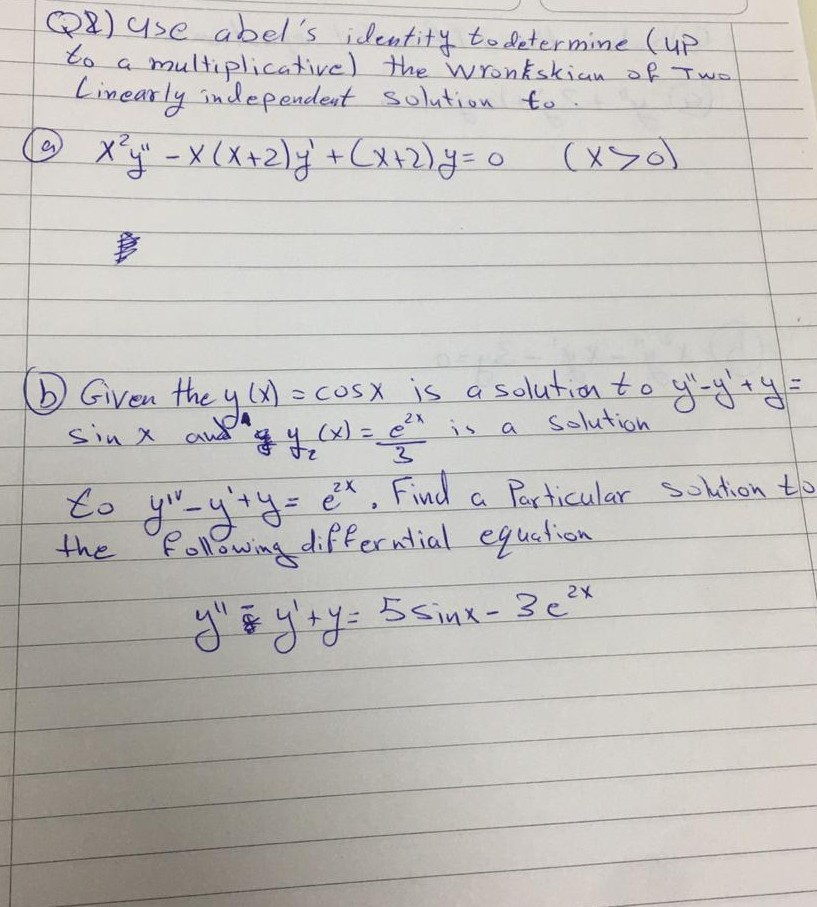 Q8) Use abel's identity to determine (up
to a multiplicative) the Wronkskian of Two
Linearly independent solution to.
(a) x²y" - x(x+2)y' + (x+2)y = 0 (x>0)
(b) Given the y₁(x) = cosx is a solution to y"-y'+y =
sin x and y₂(x) = e²ˣ/3 is a solution
to y"-y'+y = e²ˣ, Find a Particular solution to
the following differntial equation
y" - y'+y = 5sinx - 3e²ˣ